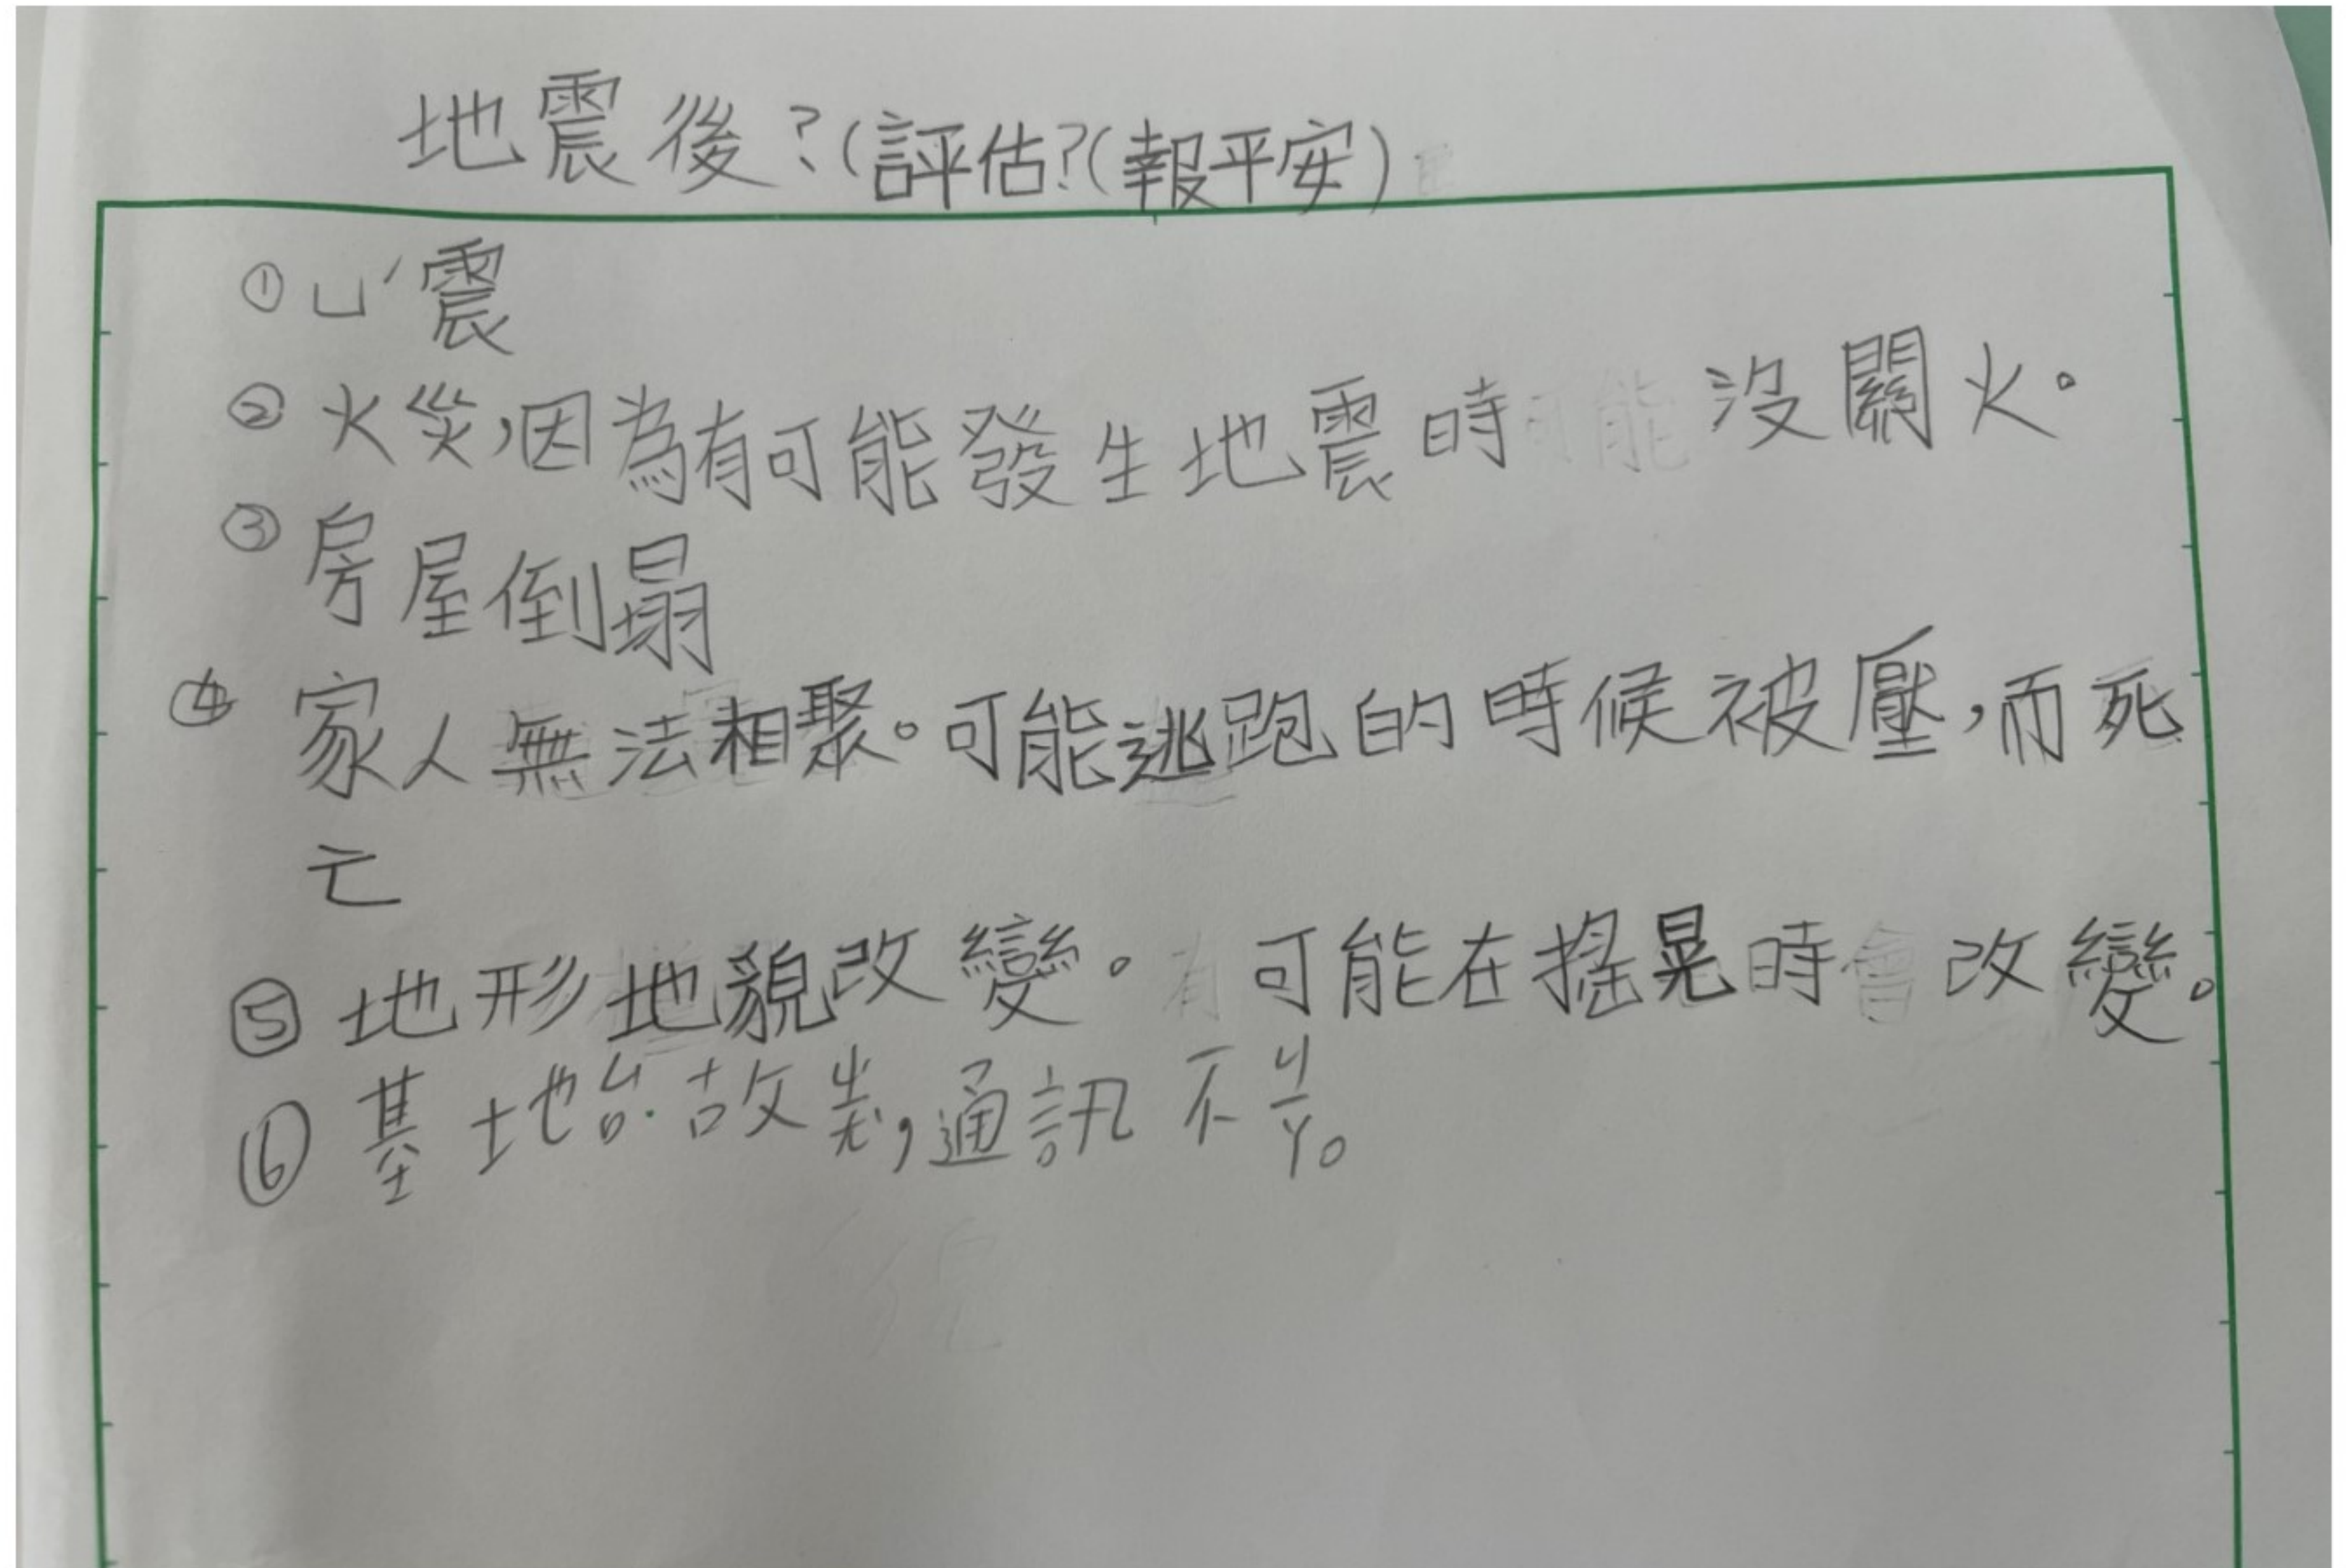 地震後?(評估?(報平安)
①ㄩˊ震
②火災,因為有可能發生地震時沒關火。
③房屋倒塌
④家人無法相聚。可能逃跑的時候被壓,而死
亡
⑤地形地貌改變。可能在搖晃時改變。
⑥基地台故障,通訊不ㄐㄧㄚ。